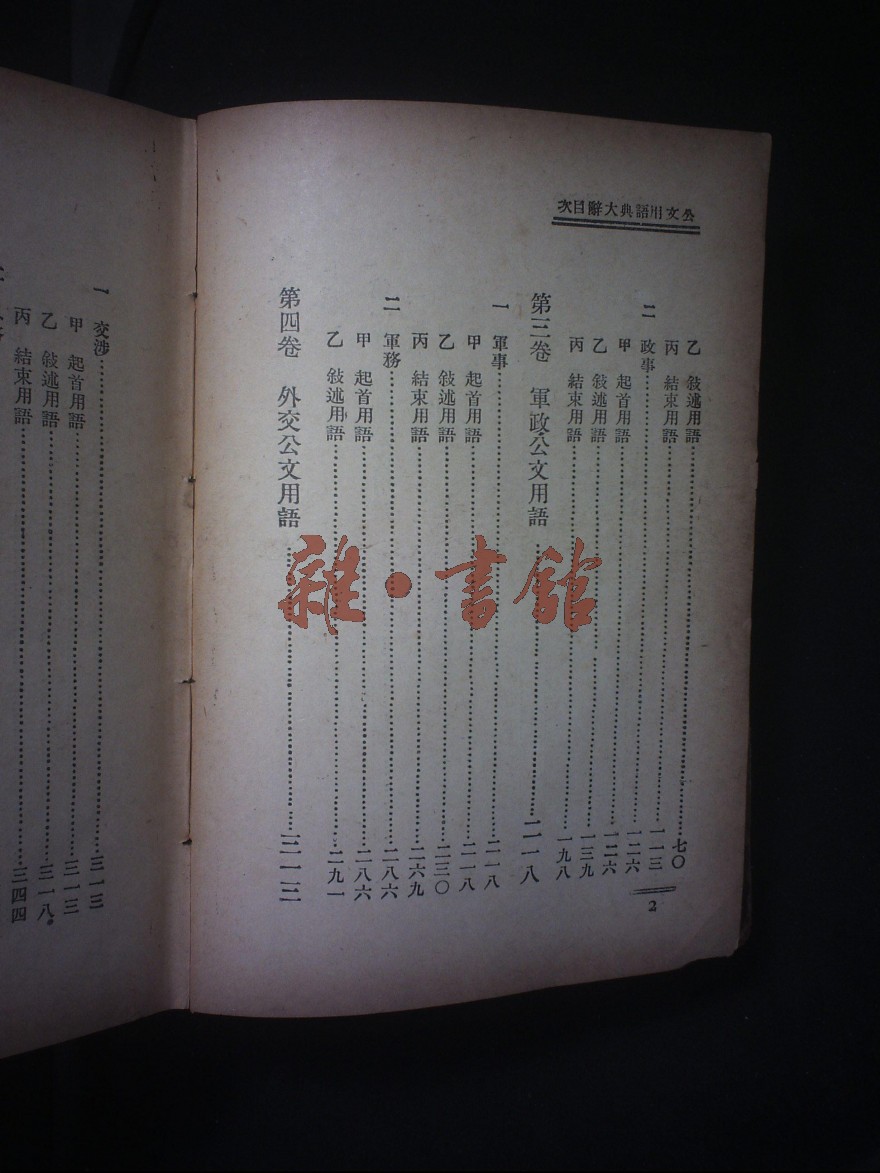 公文用語典大辭目次
乙 敍述用語……七〇
丙 結束用語……一一三
二 政事……一二六
甲 起首用語……一二六
乙 敍述用語……一三九
丙 結束用語……一九八
第三卷 軍政公文用語……二一八
一 軍事……二一八
甲 起首用語……二一八
乙 敍述用語……二三〇
丙 結束用語……二六九
二 軍務……二八六
甲 起首用語……二八六
乙 敍述用語……二九一
第四卷 外交公文用語……三一三
2
一 交涉……三一三
甲 起首用語……三一三
乙 敍述用語……三一八
丙 結束用語……三四四
雜·書館